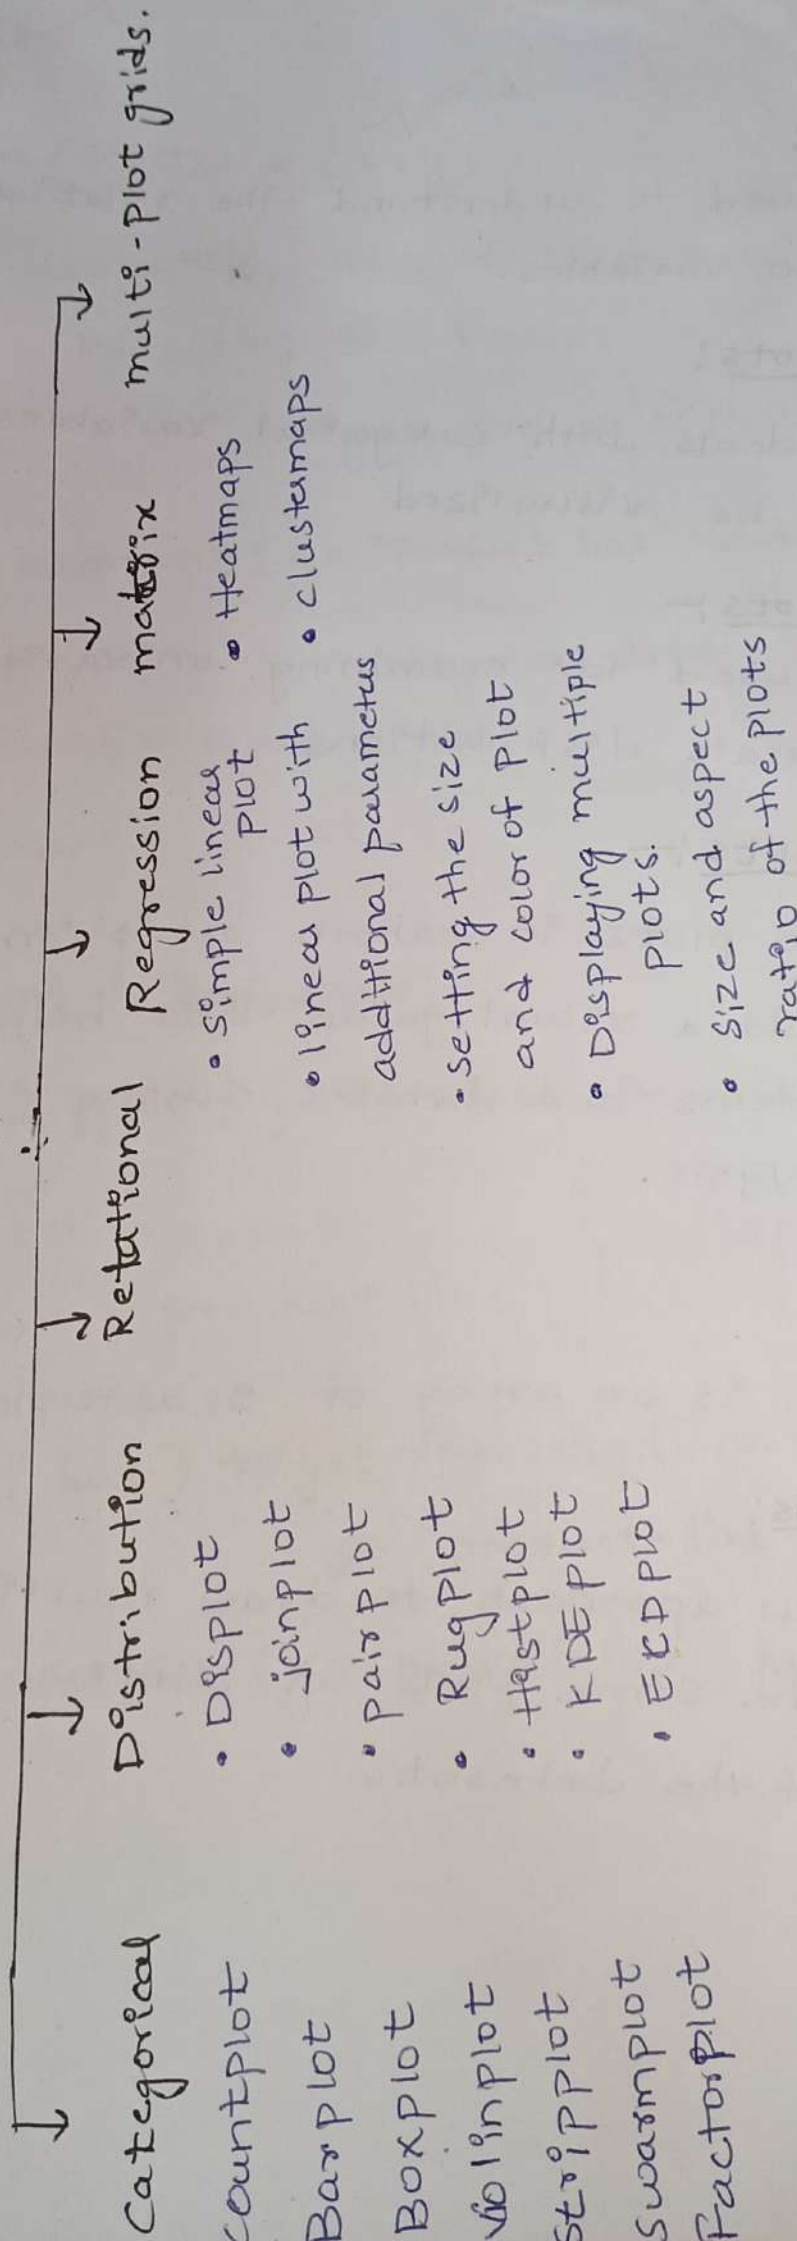 Categorical
countplot
Barplot
Boxplot
violinplot
stripplot
swarmplot
Factorplot
Distribution
• Displot
• joinplot
• pairplot
• Rugplot
• Histplot
• KDE plot
• ECD plot
Retational
Regression
• simple linear
plot
• linear plot with
additional parameters
• setting the size
and color of plot
• Displaying multiple
plots.
• size and aspect
ratio of the plots
matrix
• Heatmaps
• clustermaps
multi-plot grids.